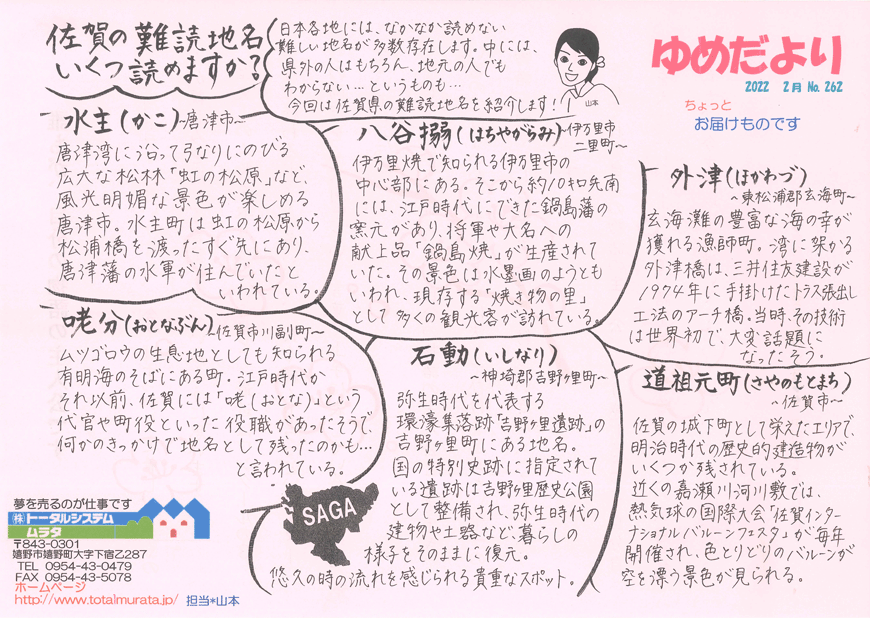 佐賀の難読地名
いくつ読めますか?
日本各地には、なかなか読めない
難しい地名が多数存在します。中には、
県外の人はもちろん、地元の人でも
わからない…というものも…
今回は佐賀県の難読地名を紹介します!
山本
ゆめだより
2022 2月 No.262
ちょっと
お届けものです
水主(かこ)~唐津市~
唐津湾に沿って弓なりにのびる
広大な松林「虹の松原」など、
風光明媚な景色が楽しめる
唐津市。水主町は虹の松原から
松浦橋を渡ったすぐ先にあり、
唐津藩の水軍が住んでいたと
いわれている。
八谷搦(はちやがらみ)~伊万里市
二里町~
伊万里焼で知られる伊万里市の
中心部にある。そこから約10キロ先南
には、江戸時代にできた鍋島藩の
窯元があり、将軍や大名への
献上品「鍋島焼」が生産されて
いた。その景色は水墨画のようとも
いわれ、現存する「焼き物の里」
として多くの観光客が訪れている。
外津(ほかわづ)
~東松浦郡玄海町~
玄海灘の豊富な海の幸が
獲れる漁師町。湾に架かる
外津橋は、三井住友建設が
1974年に手掛けたトラス張出し
工法のアーチ橋。当時、その技術
は世界初で、大変話題に
なったそう。
咾分(おとなぶん)~佐賀市川副町~
ムツゴロウの生息地としても知られる
有明海のそばにある町。江戸時代か
それ以前、佐賀には「咾(おとな)」という
代官や町役といった役職があったそうで、
何かのきっかけで地名として残ったのかも…
と言われている。
石動(いしなり)
~神埼郡吉野ヶ里町~
弥生時代を代表する
環濠集落跡「吉野ヶ里遺跡」の
吉野ヶ里町にある地名。
国の特別史跡に指定されて
いる遺跡は吉野ヶ里歴史公園
として整備され、弥生時代の
建物や土器など、暮らしの
様子をそのままに復元。
悠久の時の流れを感じられる貴重なスポット。
SAGA
道祖元町(さやのもとまち)
~佐賀市~
佐賀の城下町として栄えたエリアで、
明治時代の歴史的建造物が
いくつか残されている。
近くの嘉瀬川河川敷では、
熱気球の国際大会「佐賀インター
ナショナルバルーンフェスタ」が毎年
開催され、色とりどりのバルーンが
空を漂う景色が見られる。
夢を売るのが仕事です
㈱トータルシステム
ムラタ
〒843-0301
嬉野市嬉野町大字下宿乙287
TEL 0954-43-0479
FAX 0954-43-5078
ホームページ
http://www.totalmurata.jp/ 担当*山本